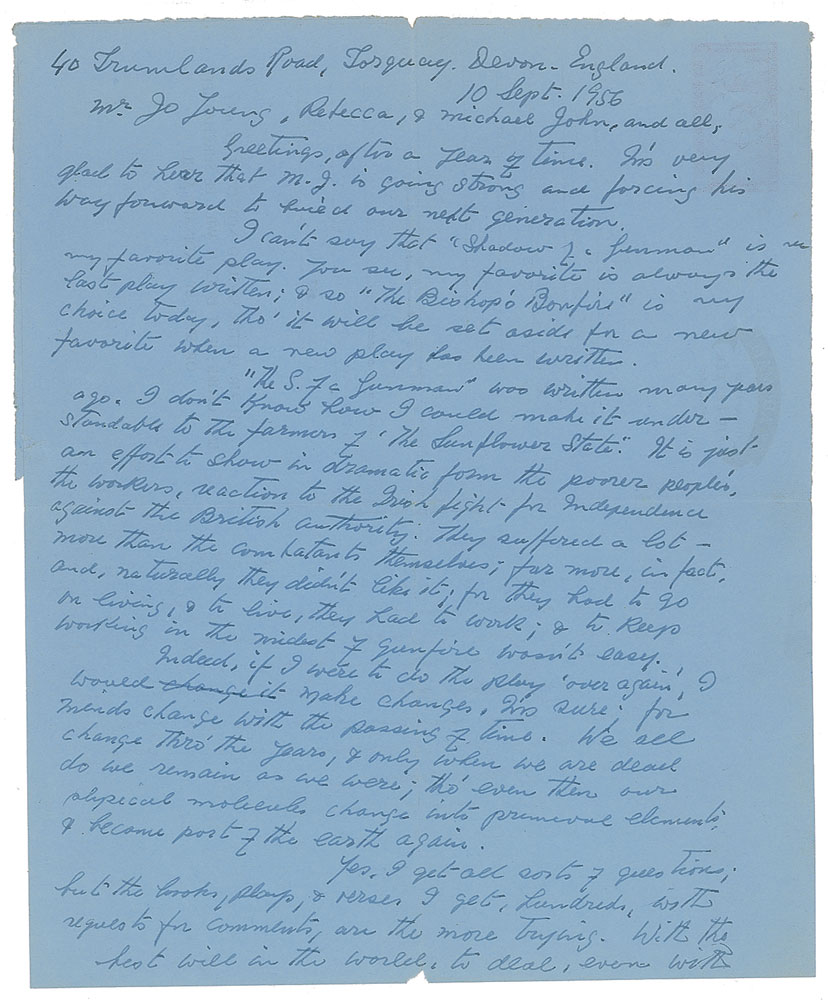 40 Trumlands Road, Torquay. Devon - England.
10 Sept. 1956
Mrs Jo Young, Rebecca, & Michael John, and all,
Greetings, after a year of time. I'm very
glad to hear that M. J. is going strong and forcing his
way forward to build our next generation.
I can't say that "Shadow of a Gunman" is
my favorite play. You see, my favorite is always the
last play written; & so "The Bishop's Bonfire" is my
choice today, tho' it will be set aside for a new
favorite when a new play has been written.
"The S. of a Gunman" was written many years
ago. I don't know how I could make it under-
standable to the farmers of 'The Sunflower State'. It is just
an effort to show in dramatic form the poorer people's,
the workers, reaction to the Irish fight for Independence
against the British authority. They suffered a lot -
more than the combatants themselves; far more, in fact,
and, naturally they didn't like it; for they had to go
on living, & to live, they had to work; & to keep
working in the midst of gunfire wasn't easy.
Indeed, if I were to do the play 'over again', I
would change it make changes, I'm sure; for
minds change with the passing of time. We all
change thro' the years, & only when we are dead
do we remain as we were; tho' even then our
physical molecules change into primeval elements,
& become part of the earth again.
Yes, I get all sorts of questions;
but the books, plays, & verses I get, hundreds, with
requests for comments, are the more trying. With the
best will in the world, to deal, even with